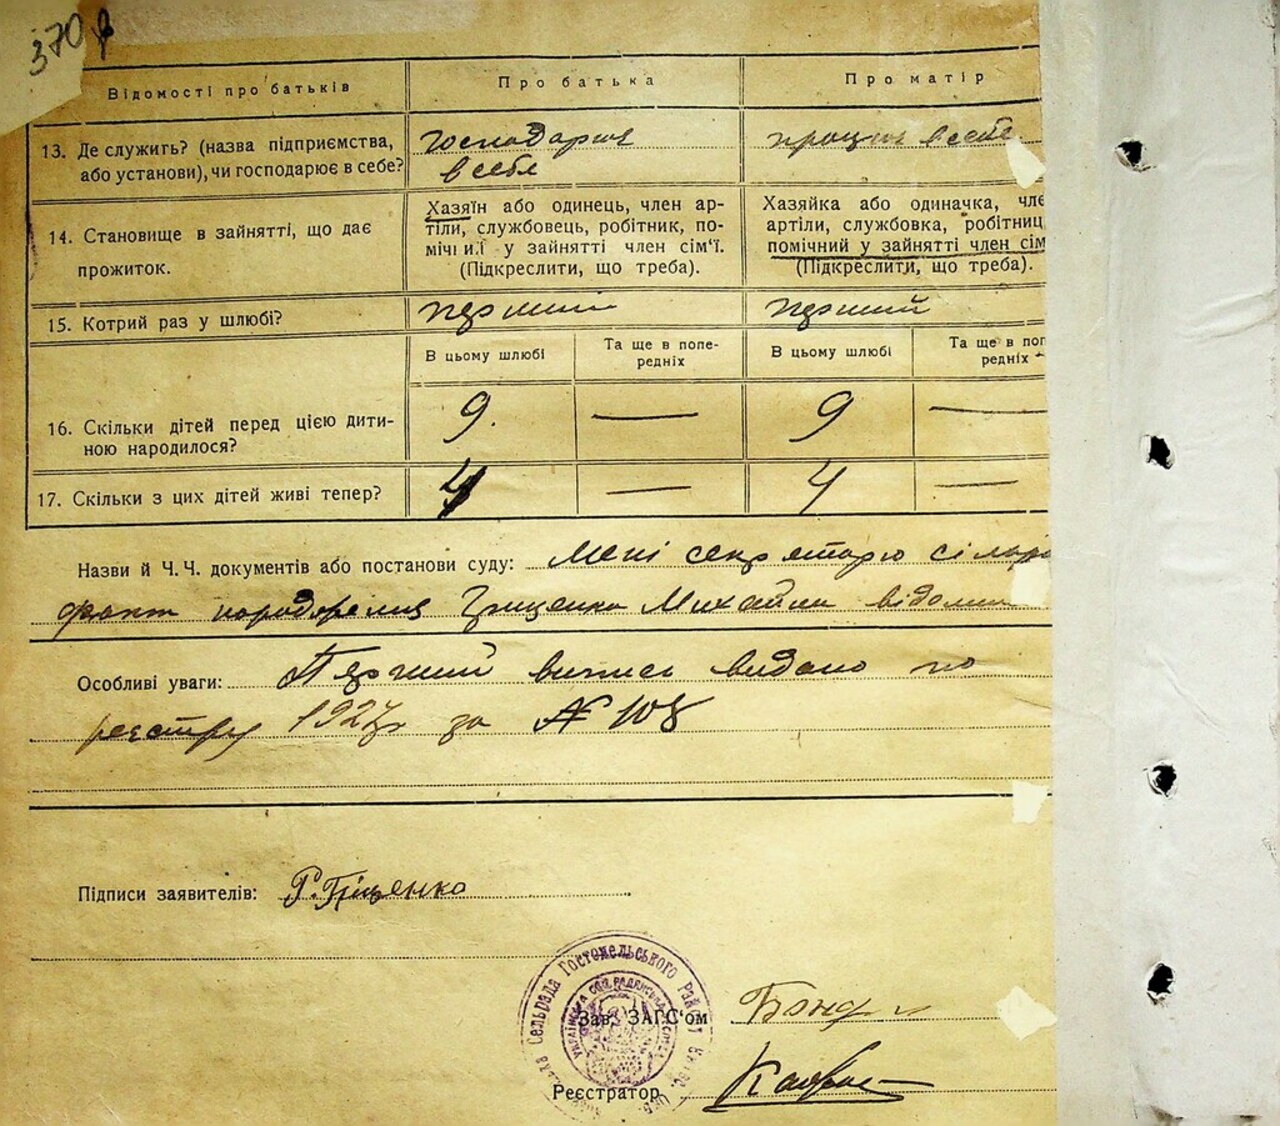 370
Відомості про батьків
Про батька
Про матір
13. Де служить? (назва підприємства,
або установи), чи господарює в себе?
господарює
в себе
працює в себе
14. Становище в зайнятті, що дає
прожиток.
Хазяїн або одинець, член ар-
тіли, службовець, робітник, по-
мічний у зайнятті член сім'ї.
(Підкреслити, що треба).
Хазяйка або одиначка, чле
артіли, службовка, робітниц
помічний у зайнятті член сім
(Підкреслити, що треба).
15. Котрий раз у шлюбі?
перший
перший
В цьому шлюбі
Та ще в попе-
редніх
В цьому шлюбі
Та ще в поп
редніх
16. Скільки дітей перед цією дити-
ною народилося?
9.
—
9
—
17. Скільки з цих дітей живі тепер?
4
—
4
—
Назви й Ч.Ч. документів або постанови суду: Мені секретарю сільра
факт народження Гриценка Михайла відомий
Особливі уваги: Перший випись видано по
реєстру 1927р за № 108
Підписи заявителів: Г. Гріценко
Сельрада Гостомельського Району
Зав. ЗАГС'ом
Реєстратор